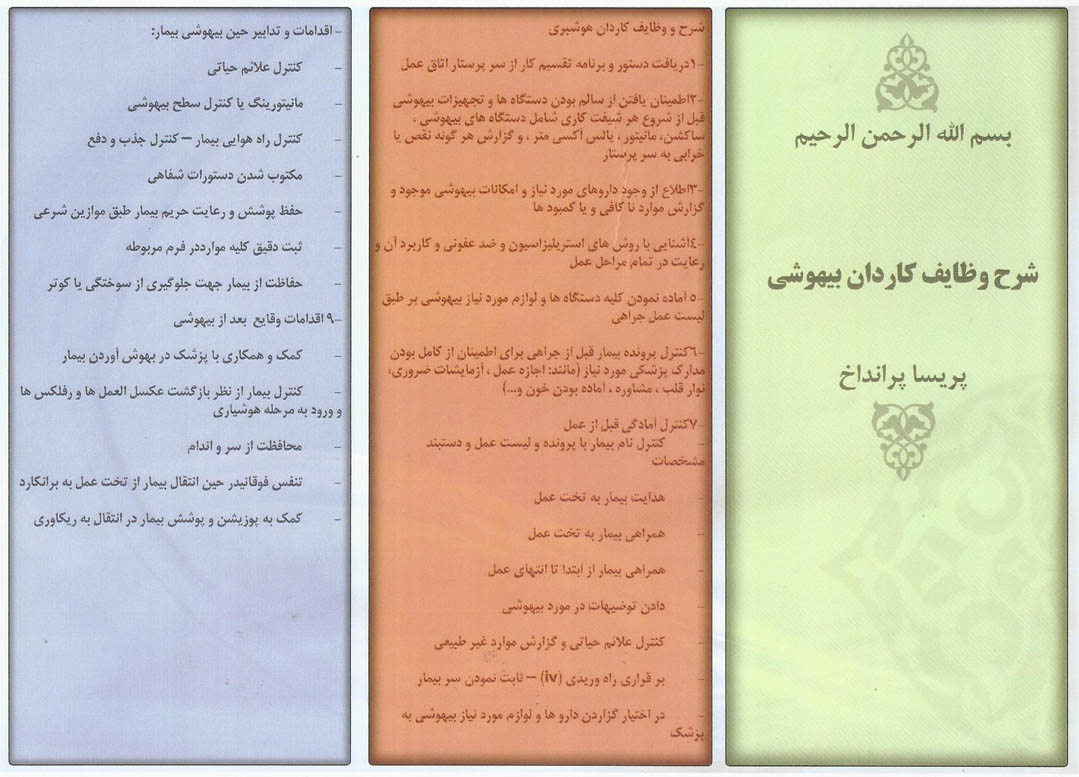 بسم الله الرحمن الرحیم
شرح وظایف کاردان بیهوشی
پریسا پرانداخ
شرح و وظایف کاردان هوشبری
-۱دریافت دستور و برنامه تقسیم کار از سر پرستار اتاق عمل
-۲اطمینان یافتن از سالم بودن دستگاه ها و تجهیزات بیهوشی
قبل از شروع هر شیفت کاری شامل دستگاه های بیهوشی ،
ساکشن، مانیتور ، پالس اکسی متر ، و گزارش هر گونه نقص یا
خرابی به سر پرستار
-۳اطلاع از وجود داروهای مورد نیاز و امکانات بیهوشی موجود و
گزارش موارد نا کافی و یا کمبود ها
-٤آشنایی با روش های استریلیزاسیون و ضد عفونی و کاربرد آن و
رعایت در تمام مراحل عمل
-٥ آماده نمودن کلیه دستگاه ها و لوازم مورد نیاز بیهوشی بر طبق
لیست عمل جراهی
-٦کنترل پرونده بیمار قبل از جراهی برای اطمینان از کامل بودن
مدارک پزشکی مورد نیاز (مانند: اجازه عمل ، آزمایشات ضروری،
نوار قلب ، مشاوره ، آماده بودن خون و...)
-۷کنترل آمادگی قبل از عمل
- کنترل نام بیمار با پرونده و لیست عمل و دستبند
مشخصات
- هدایت بیمار به تخت عمل
- همراهی بیمار به تخت عمل
- همراهی بیمار از ابتدا تا انتهای عمل
- دادن توضیهات در مورد بیهوشی
- کنترل علائم حیاتی و گزارش موارد غیر طبیعی
- بر قراری راه وریدی (iv) – ثابت نمودن سر بیمار
- در اختیار گزاردن دارو ها و لوازم مورد نیاز بیهوشی به
پزشک
- اقدامات و تدابیر حین بیهوشی بیمار:
- کنترل علائم حیاتی
- مانیتورینگ یا کنترل سطح بیهوشی
- کنترل راه هوایی بیمار – کنترل جذب و دفع
- مکتوب شدن دستورات شفاهی
- حفظ پوشش و رعایت حریم بیمار طبق موازین شرعی
- ثبت دقیق کلیه مواردد‌ر فرم مربوطه
- حفاظت از بیمار جهت جلوگیری از سوختگی یا کوتر
-۹ اقدامات وقایع بعد از بیهوشی
- کمک و همکاری با پزشک در بهوش آوردن بیمار
- کنترل بیمار از نظر بازگشت عکسل العمل ها و رفلکس ها
و ورود به مرحله هوشیاری
- محافظت از سر و اندام
- تنفس فوقانیدر حین انتقال بیمار از تخت عمل به برانکارد
- کمک به پوزیشن و پوشش بیمار در انتقال به ریکاوری